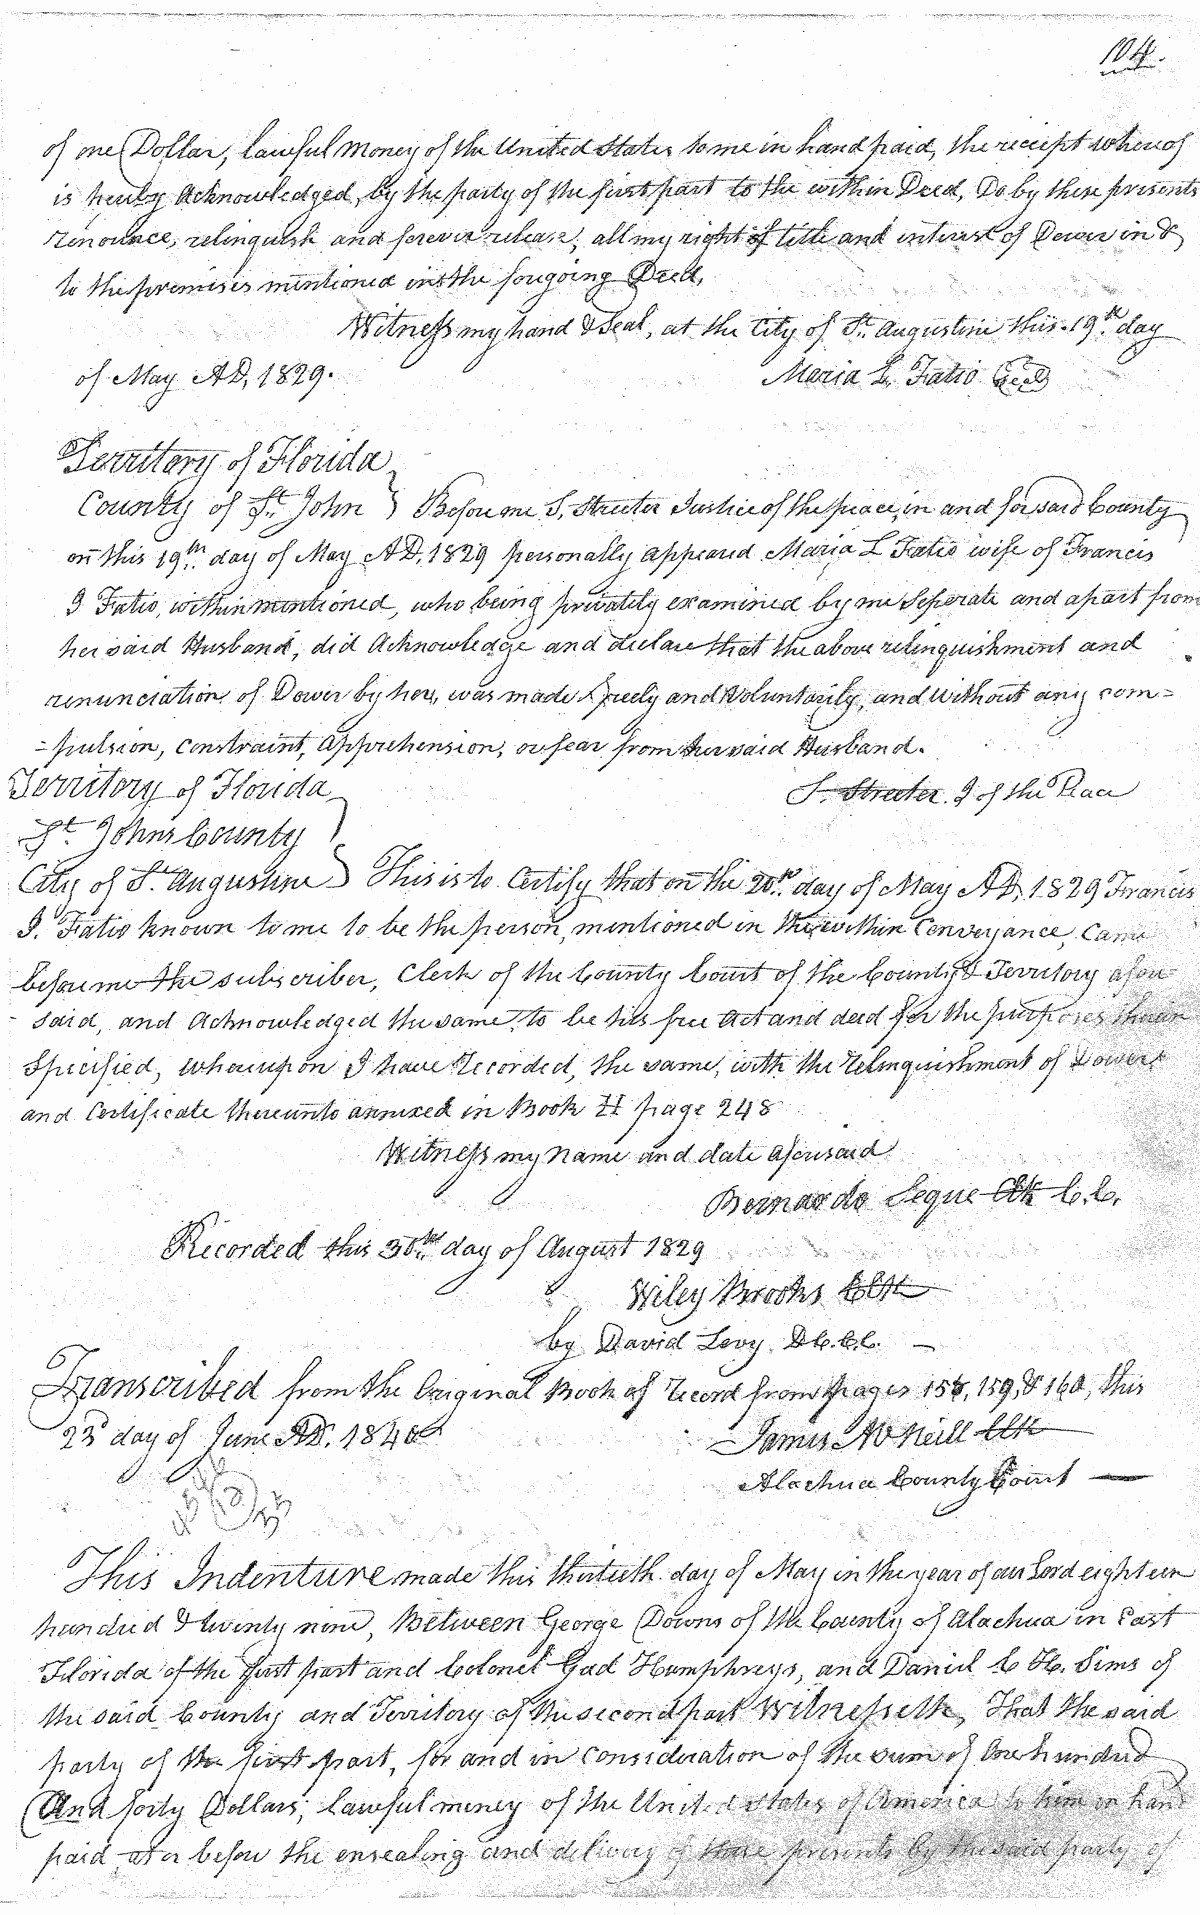 104.
of one Dollar, lawful money of the United States to me in hand paid, the receipt whereof
is hereby Acknowledged, by the party of the first part to the within Deed, Do by these presents
renounce, relinquish and forever release, all my right of title and interest of Dower in &
to the premises mentioned in the forgoing Deed,
Witness my hand & Seal, at the City of St. Augustine this 19th day
of May AD, 1829.
Maria L. Fatio Seal
Territory of Florida
County of St. John } Before me S. Streeter Justice of the peace, in and for said County
on this 19th day of May AD, 1829 personally appeared Maria L Fatio wife of Francis
J Fatio, within mentioned, who being privately examined by me Seperate and apart from
her said Husband, did Acknowledge and declare that the above relinquishment and
renunciation of Dower by her, was made freely and Voluntarily, and without any com=
=pulsion, constraint, apprehension, or fear from her said Husband.
S. Streeter J of the Peace
Territory of Florida
St. Johns County
City of St. Augustine } This is to Certify that on the 20th day of May AD, 1829 Francis
J. Fatio known to me to be the person, mentioned in the within Conveyance, Came
before me the subscriber, Clerk of the County Court of the County & Territory afore
said, and Acknowledged the same, to be his free act and deed for the purposes therein
Specified, whereupon I have recorded, the same, with the relinquishment of Dower
and Certificate thereunto annexed in Book H page 248
Witness my name and date aforesaid
Bernardo Segue Clk C.C.
Recorded this 30th day of August 1829
Wiley Brooks Clk
by David Levy D.C.C.C.
Transcribed from the Original Book of Record from pages 158, 159, & 160, this
23d day of June AD. 1840
James McNeill Clk
Alachua County Court
This Indenture made this thirtieth day of May in the year of our Lord eighteen
hundred & twenty nine, Between George Downs of the County of Alachua in East
Florida of the first part and Colonel Gad Humphreys, and Daniel C H. Sims of
the said County and Territory of the second part Witnesseth, That the said
party of the first part, for and in consideration of the sum of One hundred
And forty Dollars, lawful money of the United States of America to him in hand
paid at or before the ensealing and delivery of these presents by the said party of